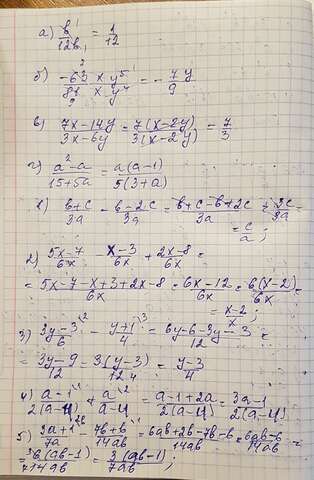 а) в/12в = 1/12
б) -63 x y⁵ / 81 x y⁴ = - 7y/9
в) 7x-14y / 3x-6y = 7(x-2y) / 3(x-2y) = 7/3
г) a²-a / 15+5a = a(a-1) / 5(3+a)
1) в+c / 3a - в-2c / 3a = в+c-в+2c / 3a = 3c / 3a =
= c/a ;
2) 5x-7 / 6x - x-3 / 6x + 2x-8 / 6x =
= 5x-7-x+3+2x-8 / 6x = 6x-12 / 6x = 6(x-2) / 6x =
= x-2 / x ;
3) 3y-3 / 6 \2 - y+1 / 4 \3 = 6y-6-3y-3 / 12 =
= 3y-9 / 12 = 3(y-3) / 12 4 = y-3 / 4
4) a-1 / 2(a-4) \1 + a / a-4 \2 = a-1+2a / 2(a-4) = 3a-1 / 2(a-4)
5) 3a+1 / 7a \2в - 7в+в / 14aв \1 = 6aв+2в-7в-в / 14aв = 6aв-6 / 14aв =
= 3 6(aв-1) / 7 14aв = 3(aв-1) / 7aв ;